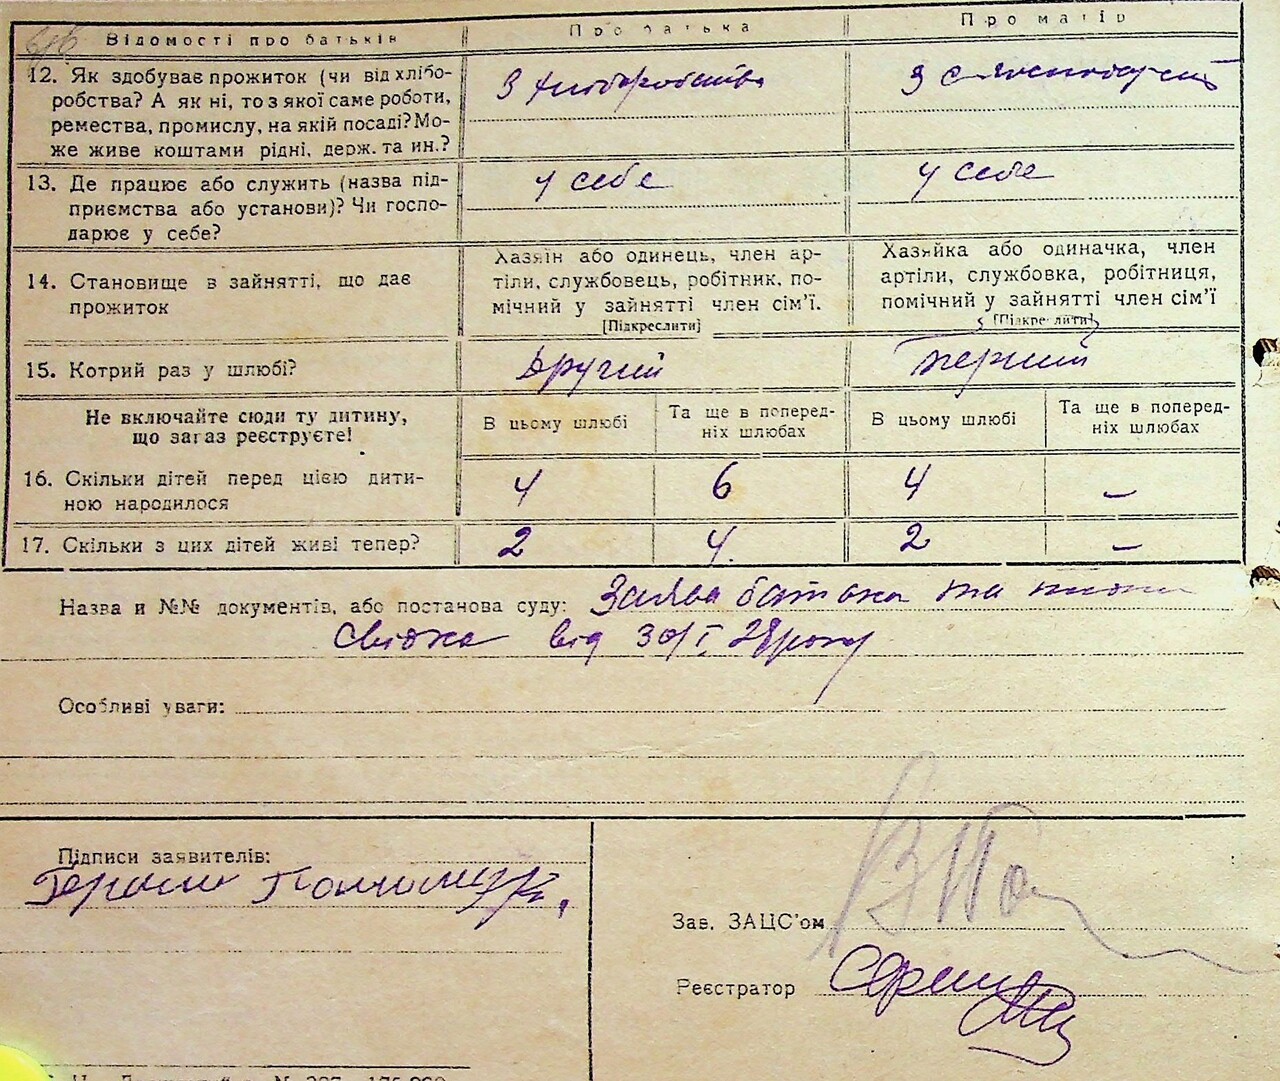 Відомості про батьків
Про батька
Про матір
12. Як здобуває прожиток (чи від хлібо-
робства? А як ні, то з якої саме роботи,
ремества, промислу, на якій посаді? Мо-
же живе коштами рідні, держ. та ин.?
З хліборобства
З
13. Де працює або служить (назва під-
приємства або установи)? Чи госпо-
дарює у себе?
у себе
у себе
14. Становище в зайнятті, що дає
прожиток
Хазяїн або одинець, член ар-
тілі, службовець, робітник, по-
мічний у зайнятті член сім'ї.
[Підкреслити]
Хазяйка або одиначка, член
артіли, службовка, робітниця,
помічний у зайнятті член сім'ї
[Підкреслити]
15. Котрий раз у шлюбі?
другий
перший
Не включайте сюди ту дитину,
що зараз реєструєте!
В цьому шлюбі
Та ще в поперед-
ніх шлюбах
В цьому шлюбі
Та ще в поперед-
ніх шлюбах
16. Скільки дітей перед цією дити-
ною народилося
4
6
4
–
17. Скільки з цих дітей живі тепер?
2
4.
2
–
Назва и №№ документів, або постанова суду: Заява батька та
від 30/I, 28 року
Особливі уваги:
Підписи заявителів:
Зав. ЗАЦС'ом
Реєстратор